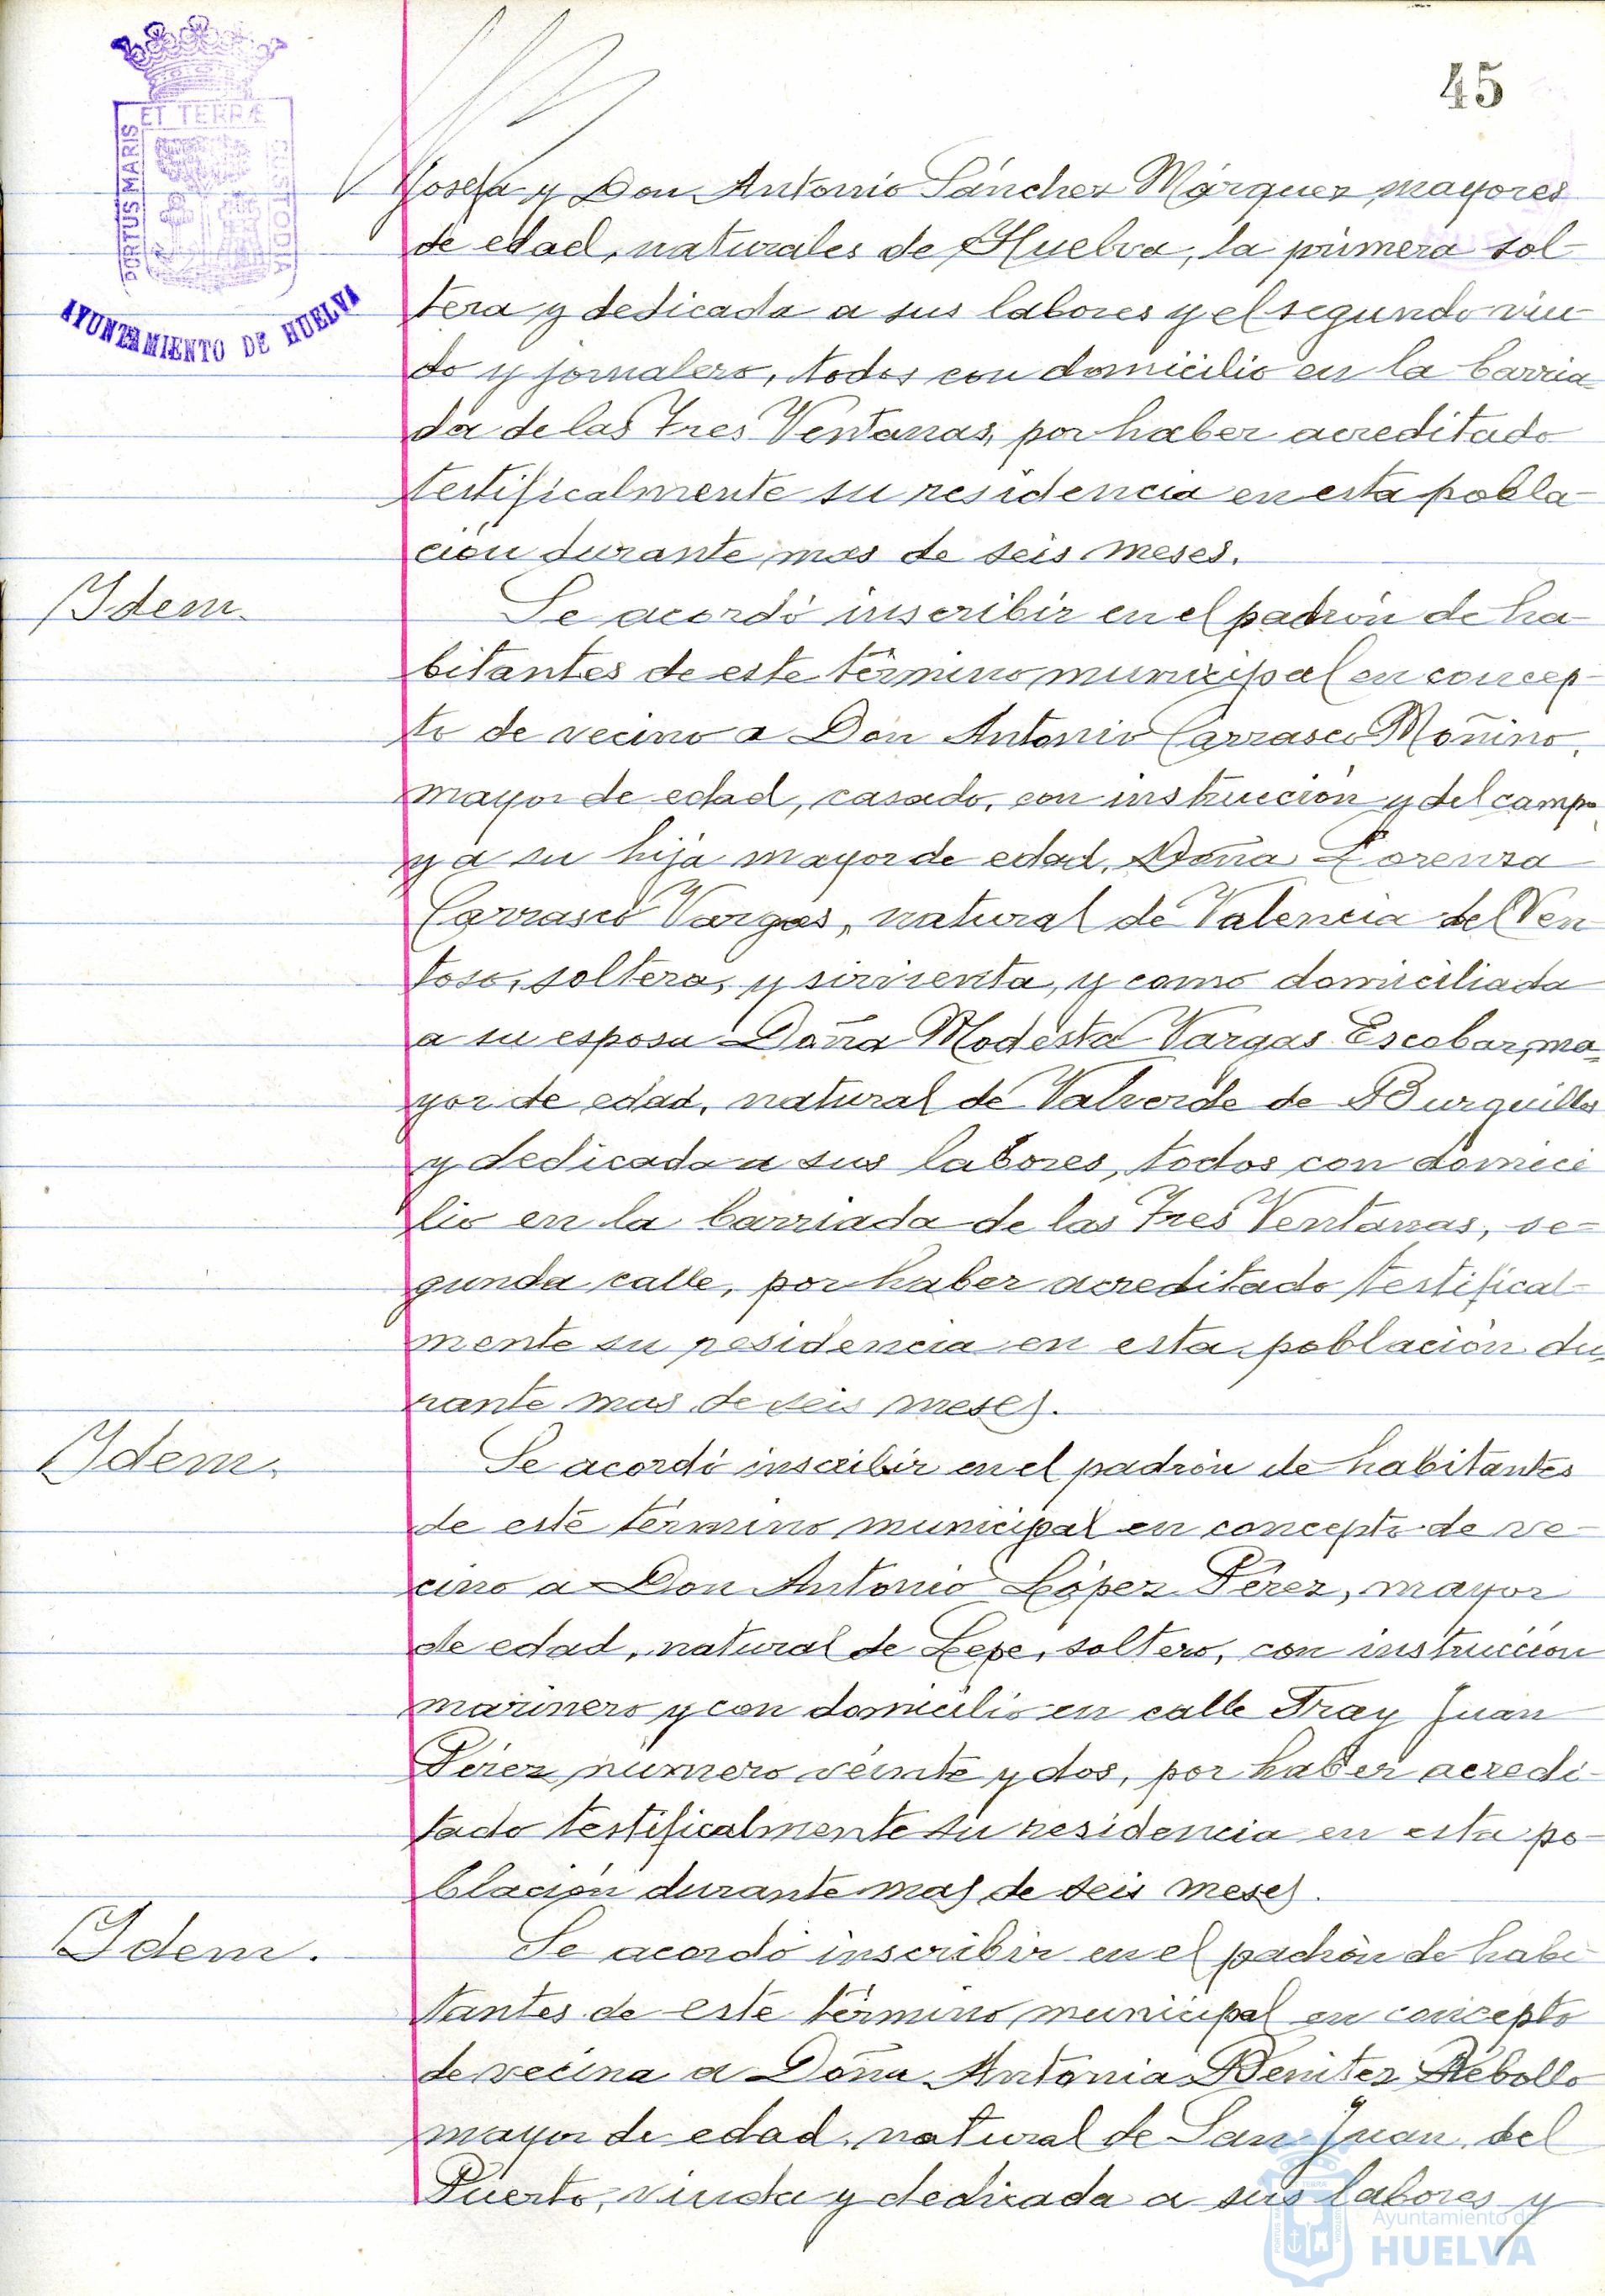 45
ET TERRÆ
PORTUS MARIS
CUSTODIA
AYUNTAMIENTO DE HUELVA
Josefa y Don Antonio Sánchez Márquez mayores
de edad, naturales de Huelva, la primera sol-
tera y dedicada a sus labores y el segundo viu-
do y jornalero, todos con domicilio en la barria-
da de las Tres Ventanas, por haber acreditado
testificalmente su residencia en esta pobla-
ción durante mas de seis meses.
Idem.
Se acordó inscribir en el padrón de ha-
bitantes de este término municipal en concep-
to de vecino a Don Antonio Carrasco Moñino,
mayor de edad, casado, con instrucción y del campo,
y a su hija mayor de edad, Doña Lorenza
Carrasco Vargas, natural de Valencia del Ven
toso, soltera, y sirvienta, y como domiciliada
a su esposa Doña Modesta Vargas Escobar, ma-
yor de edad, natural de Valverde de Burguillos
y dedicada a sus labores, todos con domici
lio en la barriada de las Tres Ventanas, se-
gunda calle, por haber acreditado testifical-
mente su residencia en esta población du-
rante mas de seis meses.
Idem.
Se acordó inscribir en el padrón de habitantes
de este término municipal en concepto de ve-
cino a Don Antonio López Pérez, mayor
de edad, natural de Lepe, soltero, con instrucción
marinero y con domicilio en calle Fray Juan
Pérez número veinte y dos, por haber acredi-
tado testificalmente su residencia en esta po-
blación durante mas de seis meses.
Idem.
Se acordó inscribir en el padrón de habi
tantes de este término municipal en concepto
de vecina a Doña Antonia Benitez Rebollo
mayor de edad, natural de San Juan del
Puerto, viuda y dedicada a sus labores y
Ayuntamiento de
HUELVA